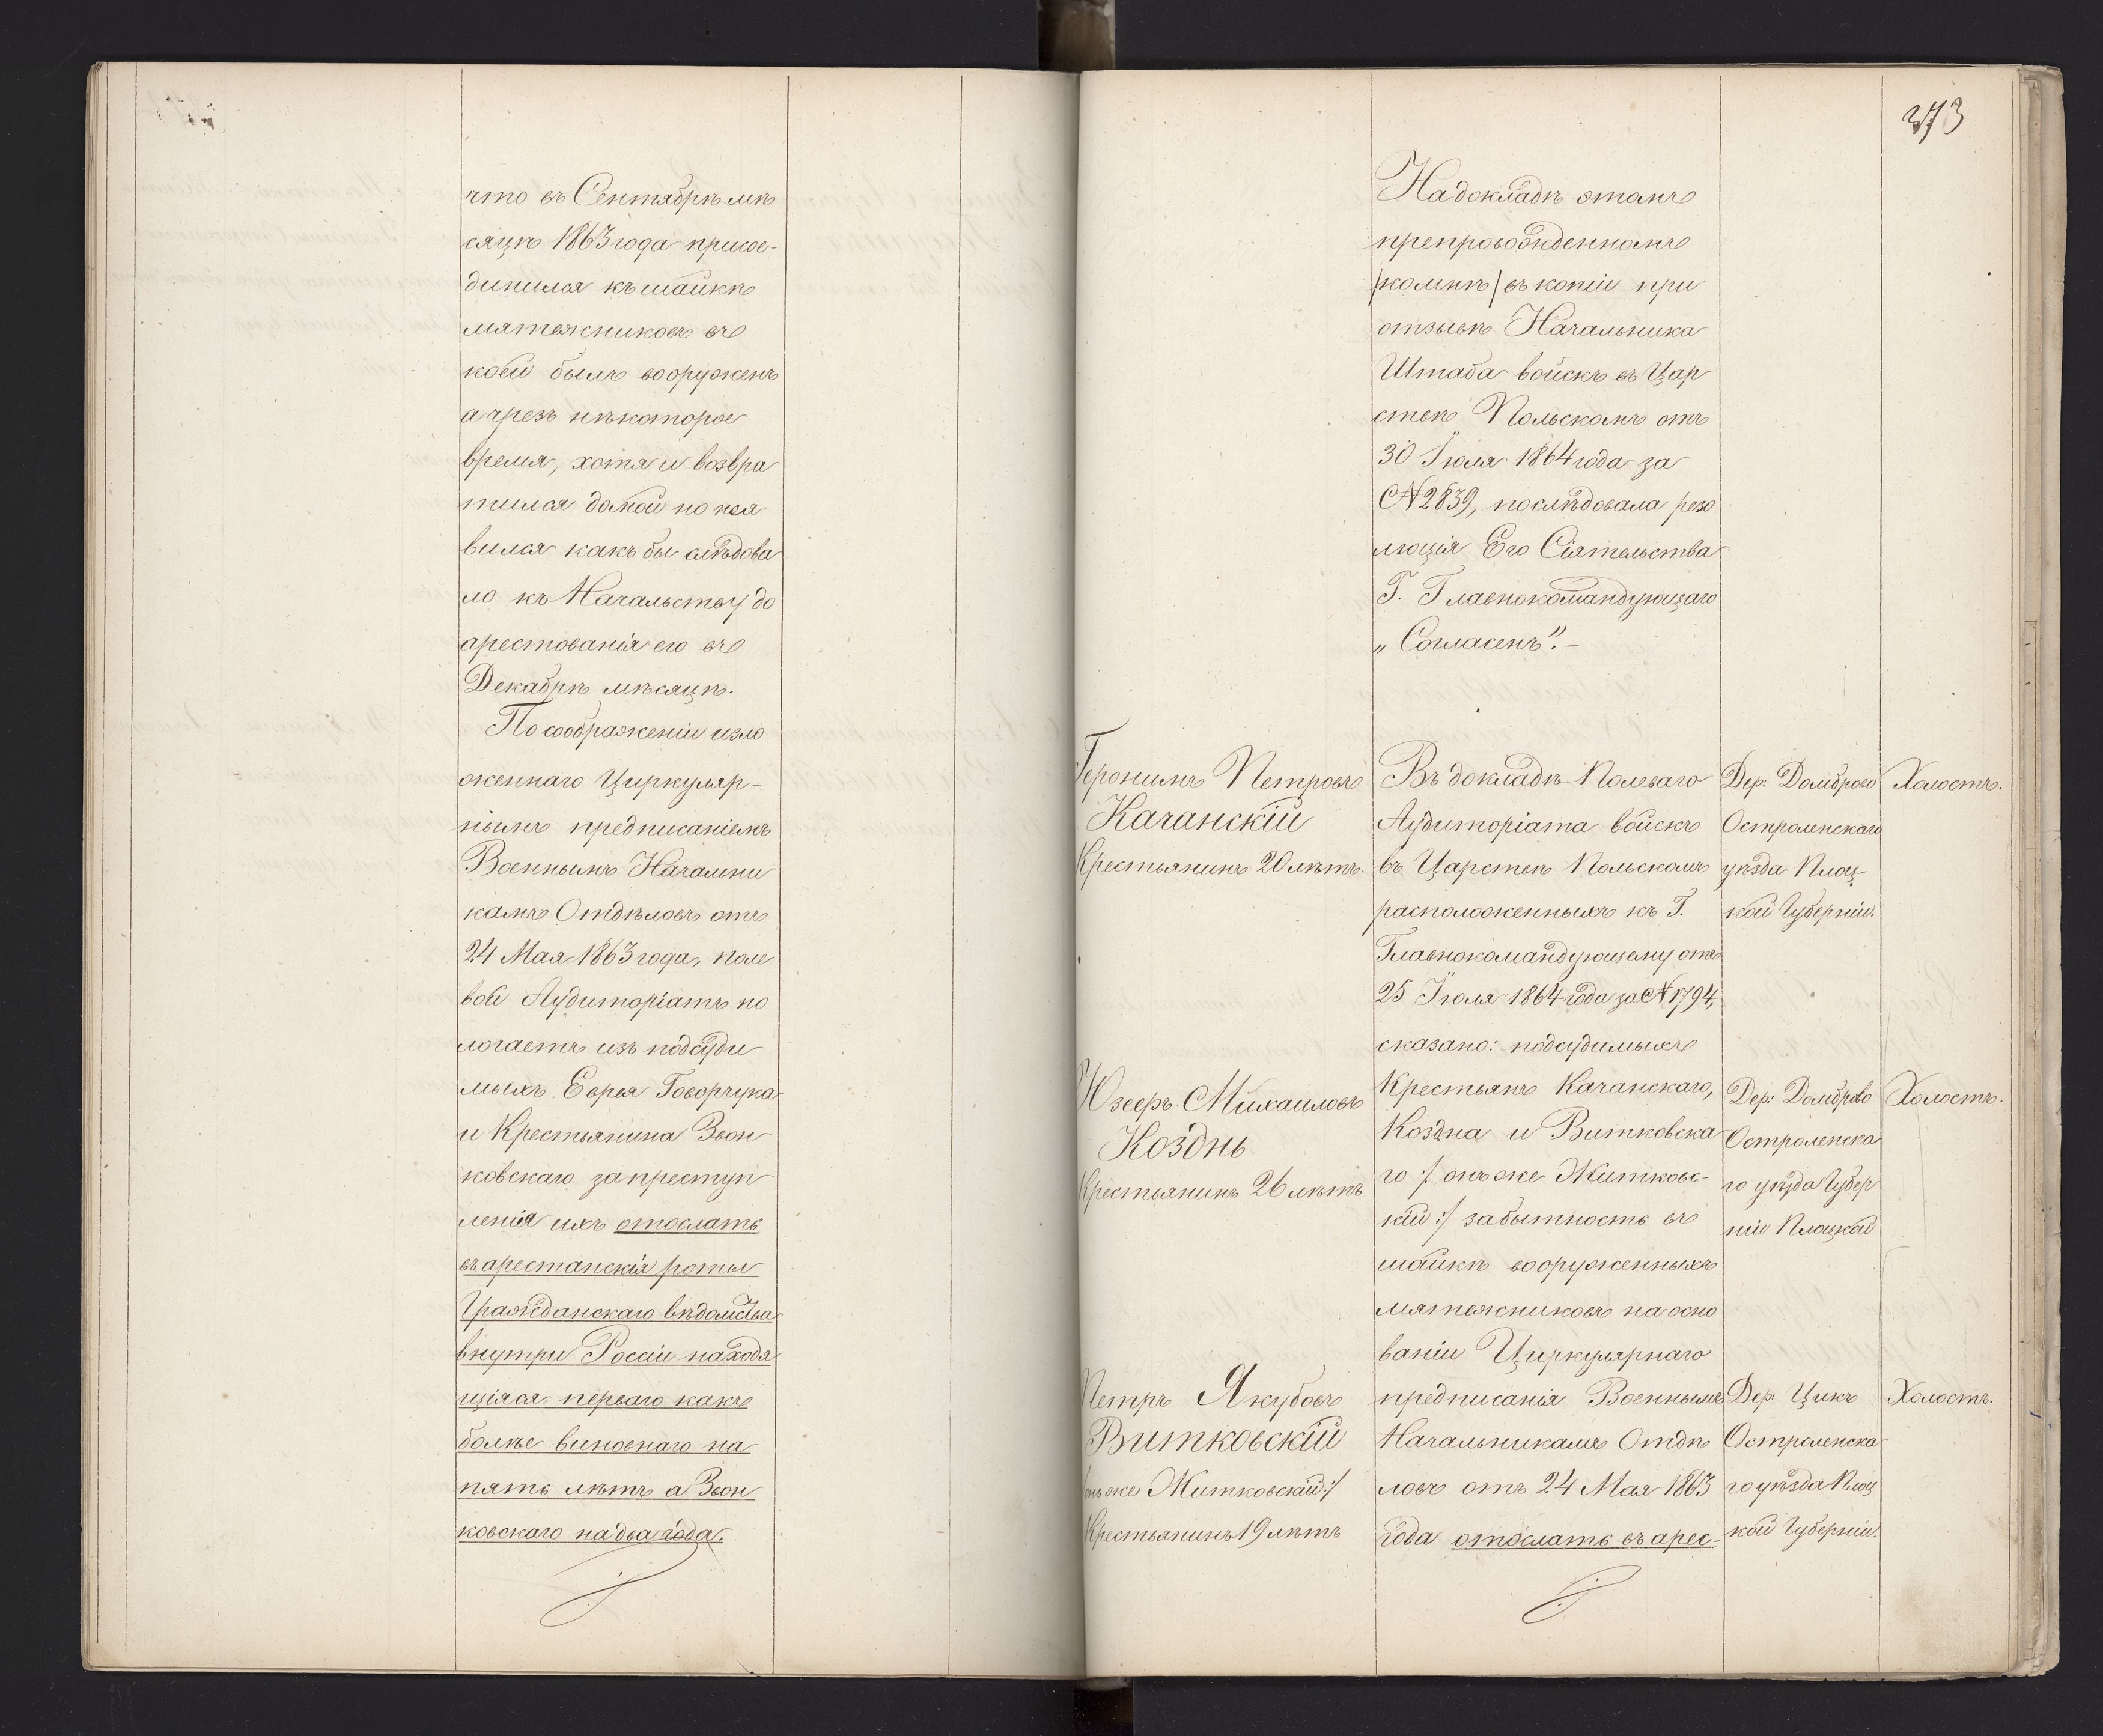 что въ Сентябрѣ мѣ
сяцѣ 1863 года присое-
динился къ шайкѣ
мятежниковъ въ
коей былъ вооруженъ
а чрезъ нѣкоторое
время, хотя и возвра
тился домой но не я
вился какъ бы слѣдова
ло къ Начальству до
арестованія его въ
Декабрѣ мѣсяцѣ.
По соображеніи изло
женнаго Циркуляр-
нымъ предписаніемъ
Военнымъ Начальни
камъ Отдѣловъ отъ
24 Мая 1863 года, поле
вой Аудиторіатъ по
логаетъ изъ подсуди
мыхъ Еврея Говорчука
и Крестьянина Звон
ковскаго за преступ
ленія ихъ отослать
въ арестанскія роты
Гражданскаго вѣдомства
внутри Россіи находя
щіяся перваго какъ
болѣе виновнаго на
пять лѣтъ а Звон
ковскаго на два года.
273
На докладѣ этомъ
препровожденномъ
/комнѣ/ въ копіи при
отзывѣ Начальника
Штаба войскъ въ Цар
ствѣ Польскомъ отъ
30 Іюля 1864 года за
№ 2839, послѣдовала резо
люція Его Сіятельства
Г. Главнокомандующаго
„Согласенъ".-
Геронимъ Петровъ
Качанскій
Крестьянинъ 20 лѣтъ.
Юзефъ Михаиловъ
Козднь
Крестьянинъ 26 лѣтъ
Петръ Якубовъ
Витковскій
онъ же Житковскій:/
Крестьянинъ 19 лѣтъ
Въ докладѣ Полеваго
Аудиторіата войскъ
въ Царствѣ Польскомъ
расположенныхъ къ Г.
Главнокомандующему отъ
25 Іюля 1864 года за № 1794,
сказано: подсудимыхъ
Крестьянъ Качанскаго,
Коздна и Витковска
го /: онъ же Житковс-
кій :/ за бытность въ
шайкѣ вооруженныхъ
мятежниковъ на осно
ваніи Циркулярнаго
предписанія Военнымъ
Начальникамъ Отдѣ
ловъ отъ 24 Мая 1863
года отослать въ арес-
Дер: Домброво
Остроленскаго
уѣзда Плоц-
кой Губерніи.
Дер: Домброво
Остроленска
го уѣзда Губер
ніи Плоцкой
Дер: Цикъ
Остроленска
го уѣзда Плоц
кой Губерніи.
Холостъ.
Холостъ.
Холостъ.